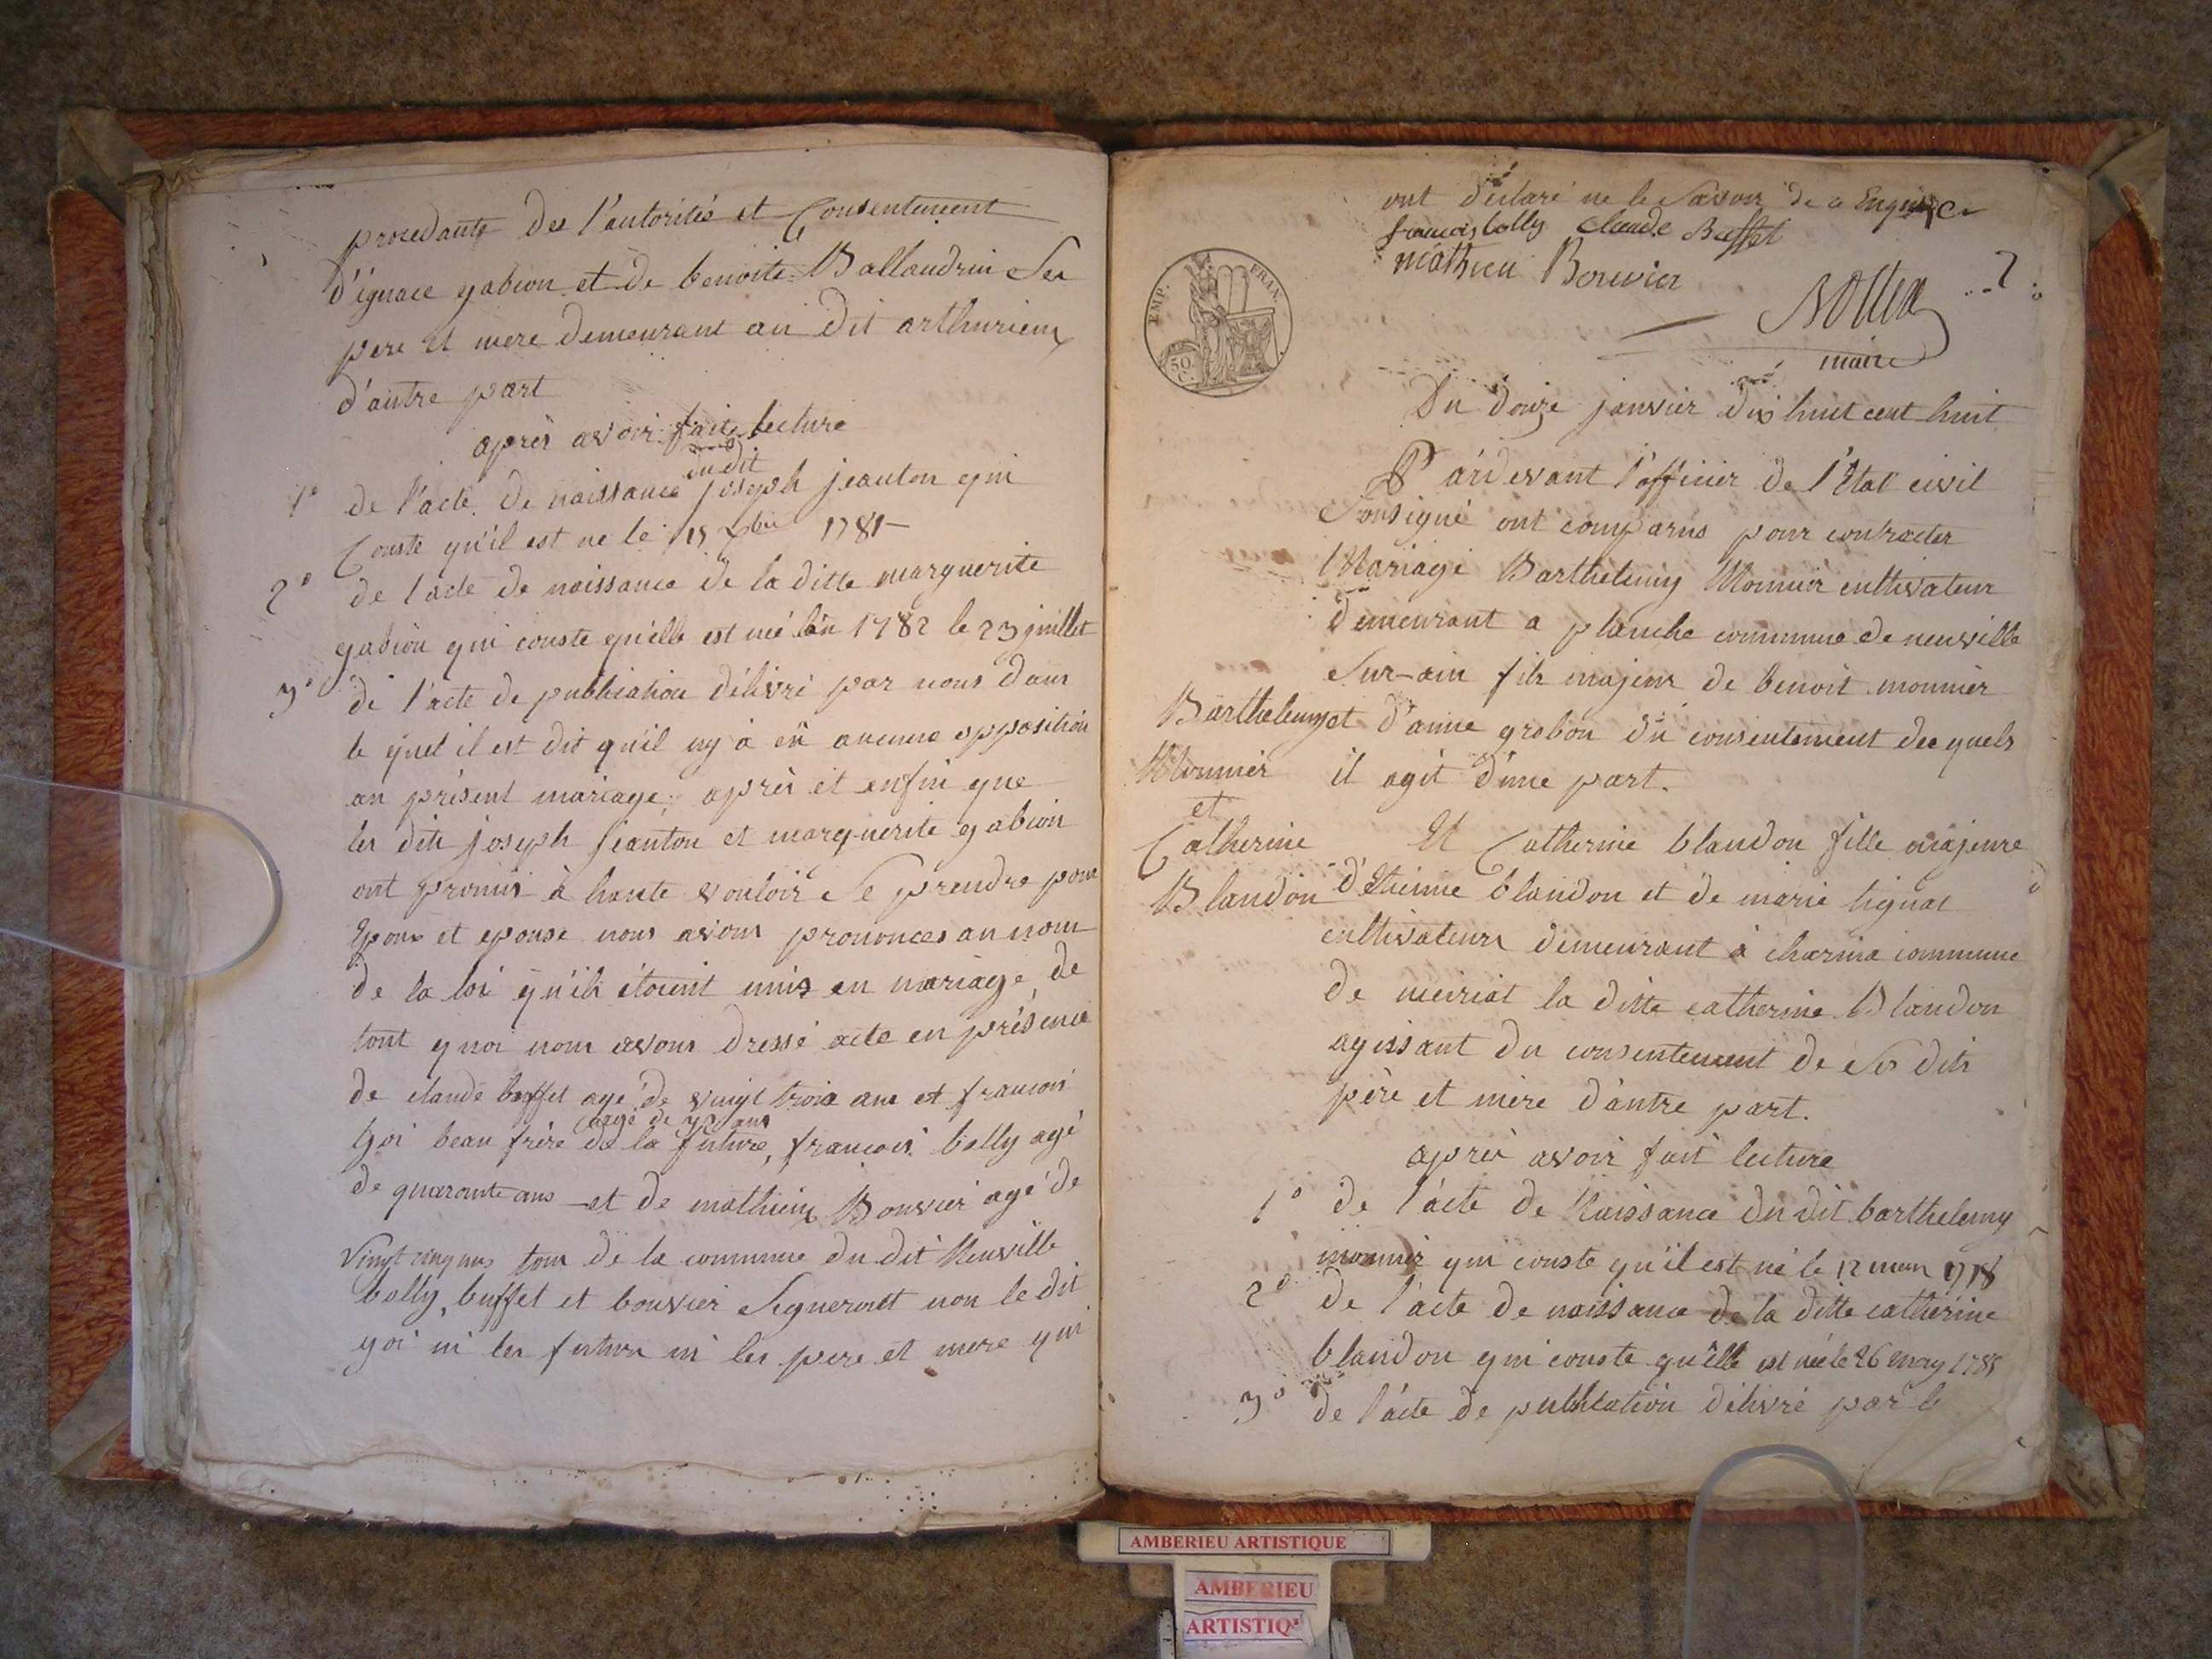 procedante des l'autorités et Consentement
d'ignace gabion et de benoite Ballandrin Ses
pere et mere demeurant au dit arthurieux
d'autre part
après avoir fait lecture
1° de l'acte de naissance du dit joseph jeanton qui
Conste qu'il est ne le 15 bre 1781
2° de l'acte de naissance de la ditte marguerite
gabion qui conste qu'elle est neé l'an 1782 le 23 juillet
3° de l'acte de publication délivré par nous dans
le quel il est dit qu'il ny à eû aucune opposition
au présent mariage, après et enfin que
les dits joseph jeanton et marguerite gabion
ont promis à haute vouloir Se prendre pour
Epoux et epouse nous avons prononces au nom
de la loi qu'ils étoient unis en mariage, de
tout quoi nous avons dressé acte en présence
de claude buffet agé de vingt trois ans et francois
goi beau frère de la future, francois bolly agé
agé de ans
de quarante ans et de mathieu Bouvier agé de
vingt cinq ans tous de la commune du dit Neuville
bolly, buffet et bouvier Signeront non le dit
goi ni les futurs ni les pere et mere qui
ont déclaré ne le Savoir de ce Enquis
francois bolly Claude Buffet
mathieu Bouvier
maire
EMP. FRAN.
50 C.
Du douze janvier dix huit cent huit
Pardevant l'officier de l'Etat civil
Sousigné ont comparus pour contracter
Mariage Barthelemy Monnier cultivateur
demeurant a planche commune de neuville
Sur-ain fils majeur de benoit monnier
et d'anne grobon du consentement des quels
il agit d'une part.
Barthelemy
Monnier
et
Catherine
Blandon
Et Catherine blandon fille majeure
d'Etienne blandon et de marie lignat
cultivateurs demeurant à charina commune
de meiriat la ditte catherine Blandon
agissant du consentement de Ses dits
père et mère d'autre part.
après avoir fait lecture
1° de l'acte de Naissance du dit barthelemy
monnier qui conste qu'il est né le 12 mars
2° de l'acte de naissance de la ditte catherine
blandon qui conste qu'elle est née le 26 may 1785
3° de l'acte de publication délivré par le
AMBERIEU ARTISTIQUE
AMBERIEU
ARTISTIQ